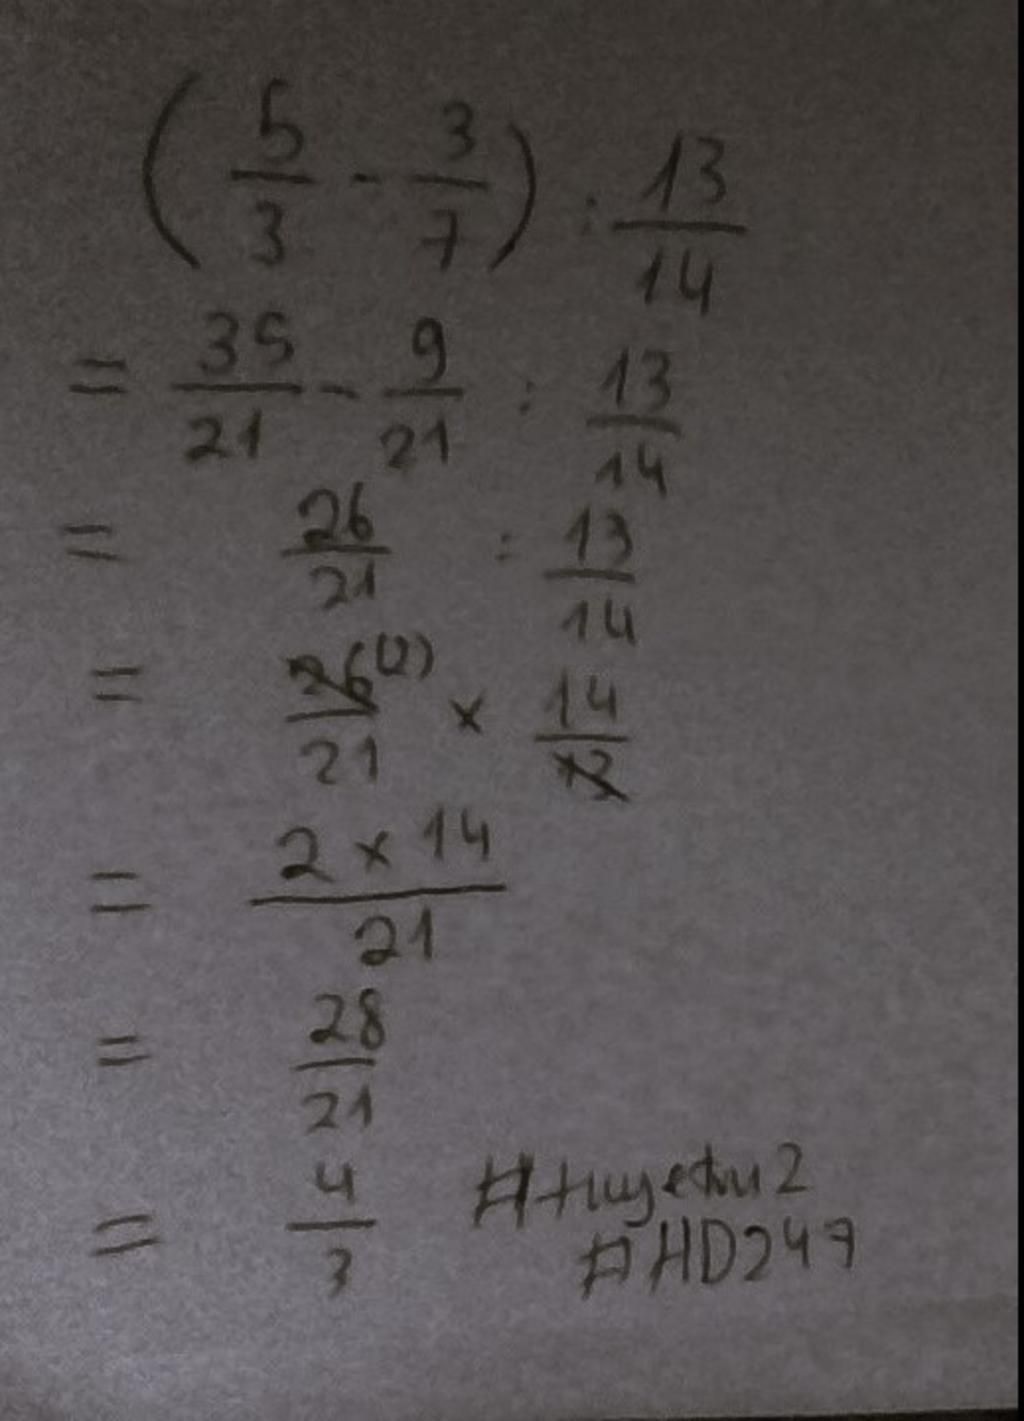 (5/3 - 3/7) : 13/14
= 35/21 - 9/21 : 13/14
= 26/21 : 13/14
= 26(2)/21 x 14/13
= 2 x 14/21
= 28/21
= 4/3
#HD247